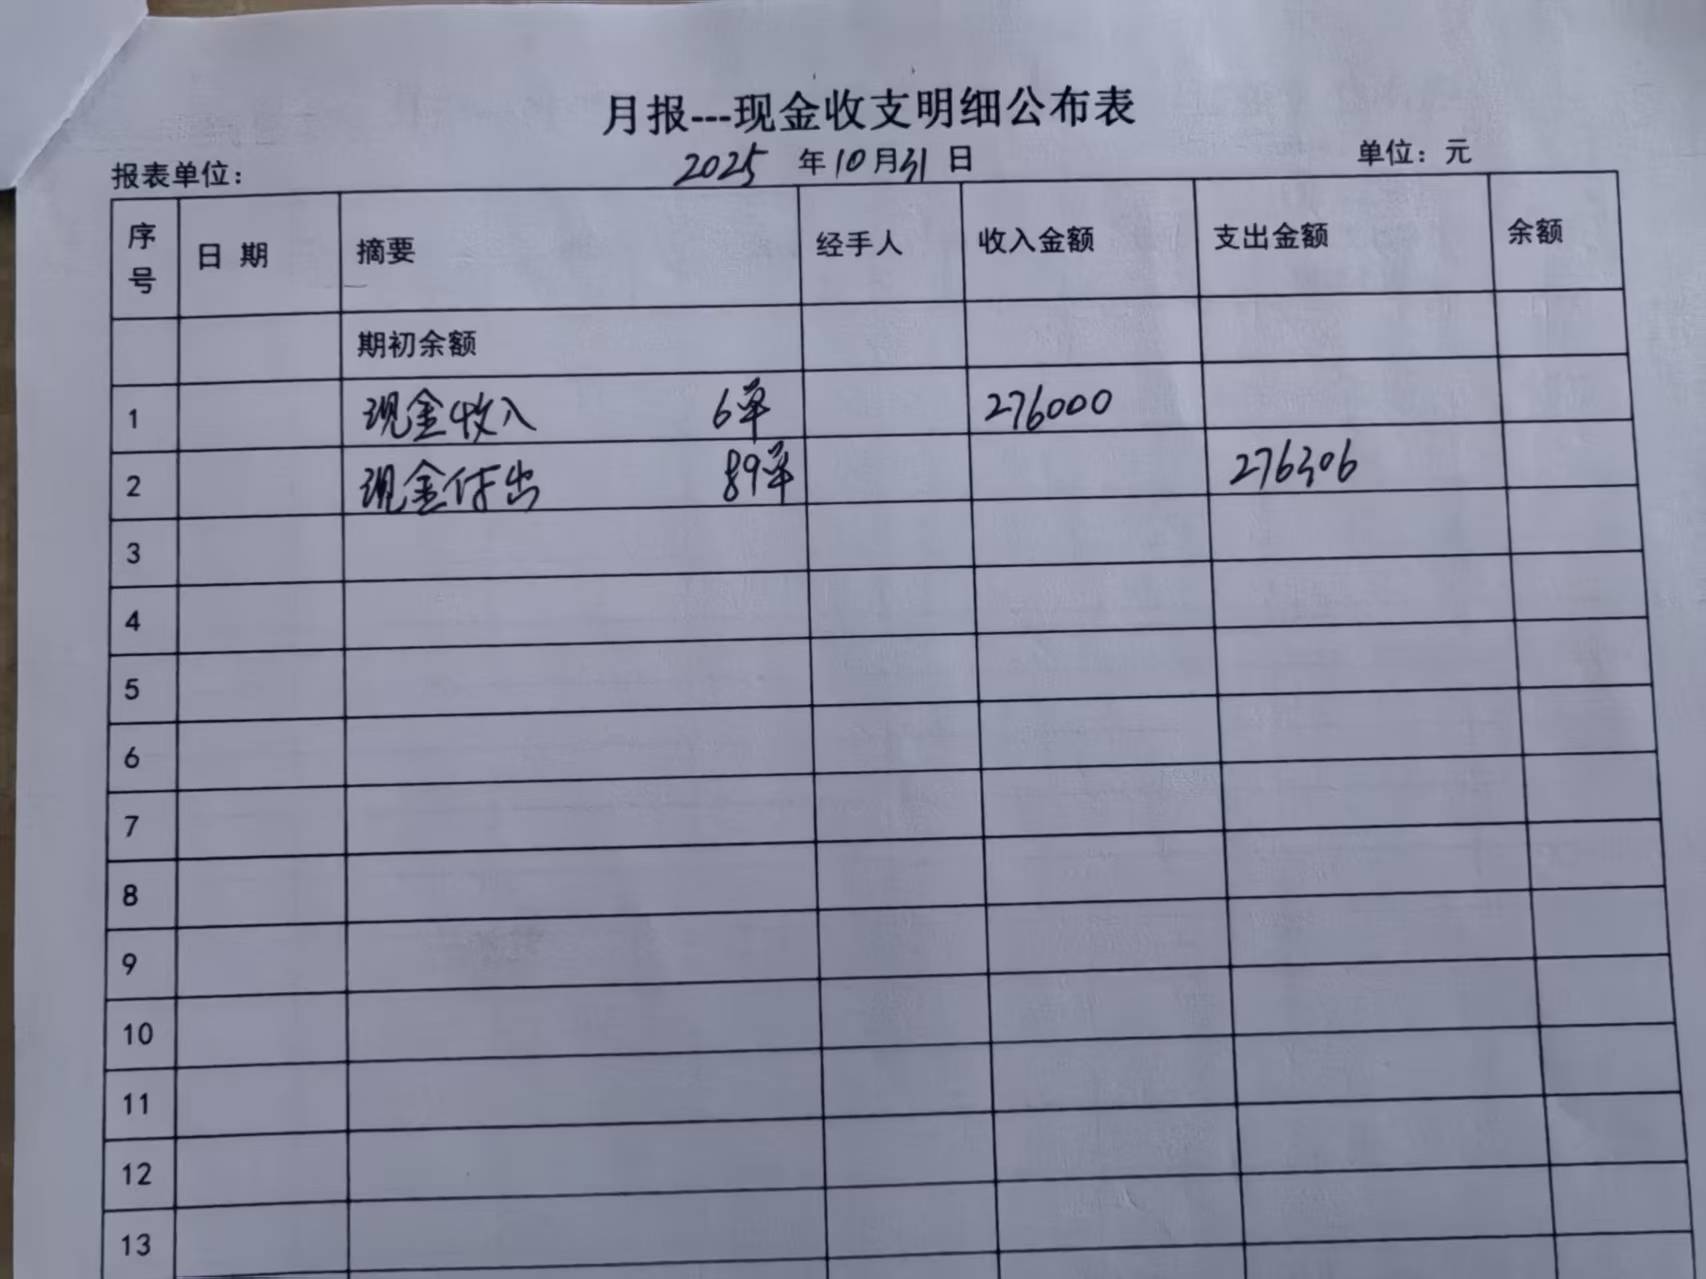 月报---现金收支明细公布表
报表单位： 2025 年 10 月 31 日 单位：元
序号 日 期 摘要 经手人 收入金额 支出金额 余额
期初余额
1 现金收入 6单 276000
2 现金付出 89单 276306
3
4
5
6
7
8
9
10
11
12
13